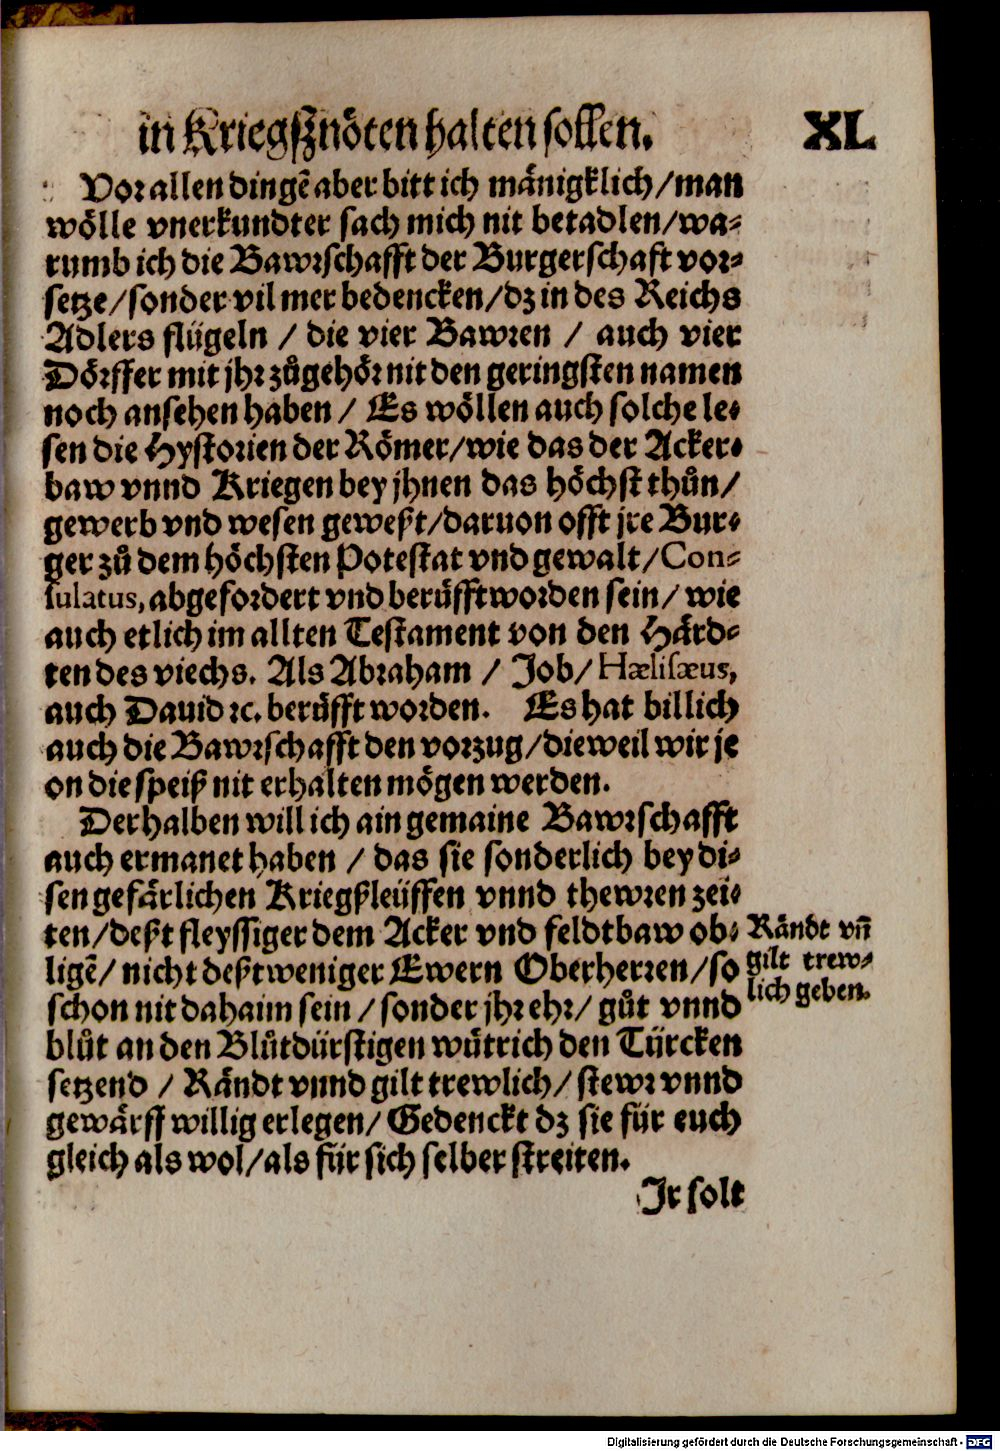 in Kriegsznöten halten sollen. XL
Vor allen dingē aber bitt ich mänigklich/man
wölle vnerkundter sach mich nit betadlen/wa-
rumb ich die Bawrschafft der Burgerschaft vor-
setze/sonder vil mer bedencken/dz in des Reichs
Adlers flügeln / die vier Bawren / auch vier
Dörffer mit jhr zůgehör nit den geringsten namen
noch ansehen haben / Es wöllen auch solche le-
sen die Hystorien der Römer/wie das der Acker-
baw vnnd Kriegen bey jhnen das höchst thůn/
gewerb vnd wesen geweßt/daruon offt jre Bur-
ger zů dem höchsten Potestat vnd gewalt/Con-
sulatus, abgefordert vnd berüfft worden sein/ wie
auch etlich im allten Testament von den Härd-
ten des viechs. Als Abraham / Job/ Hælisæus,
auch Dauid ꝛc. berüfft worden. Es hat billich
auch die Bawrschafft den vorzug/dieweil wir je
on die speiß nit erhalten mögen werden.
Derhalben will ich ain gemaine Bawrschafft
auch ermanet haben / das sie sonderlich bey di-
sen gefärlichen Kriegßleüffen vnnd thewren zei-
ten/deßt fleyssiger dem Acker vnd feldtbaw ob-
ligē/ nicht deßtweniger Ewern Oberherren/so
schon nit dahaim sein / sonder jhr ehr/ gůt vnnd
blůt an den Blůtdürstigen wütrich den Türcken
setzend / Rändt vnnd gilt trewlich/ stewr vnnd
gewärff willig erlegen/ Gedenckt dz sie für euch
gleich als wol/als für sich selber streiten.
Ir solt
Rändt vñ
gilt trew-
lich geben.
Digitalisierung gefördert durch die Deutsche Forschungsgemeinschaft - DFG